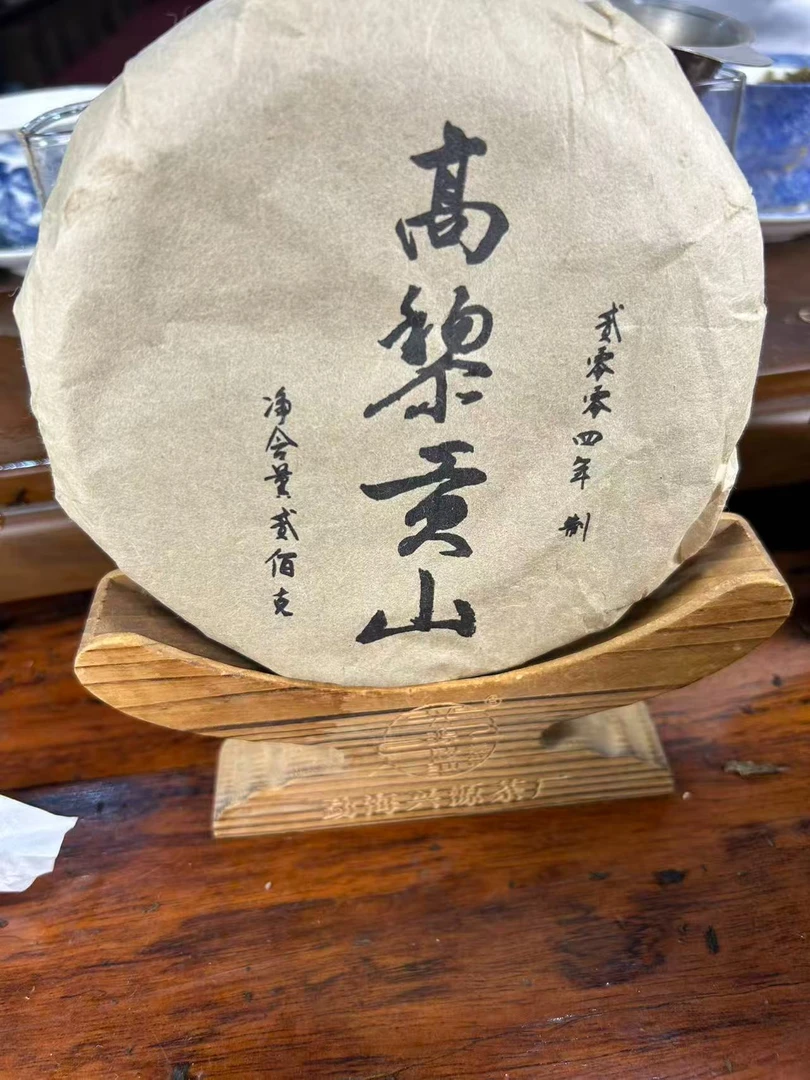 贰零零四年 制
高黎贡山
净含量贰佰克
勐海兴源茶厂